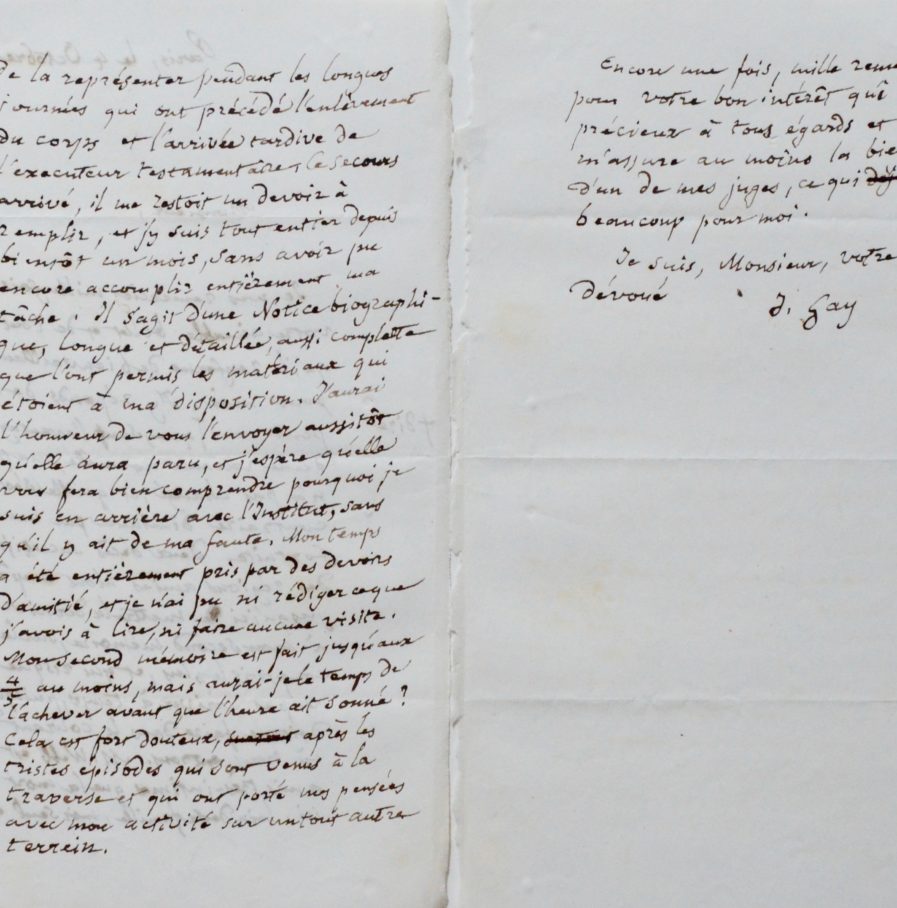 De la représenter pendant les longues
journées qui ont précédé l'enlèvement
du corps et l'arrivée tardive de
l'executeur testamentaire. Le secours
arrivé, il me restoit un devoir à
remplir, et j'y suis tout entier depuis
bientôt un mois, sans avoir pu
encore accomplir entièrement ma
tâche. Il s'agit d'une Notice biographi-
que, longue et détaillée, aussi complette
que l'ont permis les matériaux qui
étoient à ma disposition. J'aurai
l'honneur de vous l'envoyer aussitôt
qu'elle aura paru, et j'espère qu'elle
vous fera bien comprendre pourquoi je
suis en arrière avec l'Institut, sans
qu'il y ait de ma faute. Mon temps
a été entièrement pris par des devoirs
d'amitié, et je n'ai pu ni rédiger ce que
j'avois à lire, ni faire aucune visite.
Mon second mémoire est fait jusqu'aux
4/5 au moins, mais aurai-je le temps de
l'achever avant que l'heure ait sonné?
Cela est fort douteux, après les
tristes épisodes qui sont venus à la
traverse et qui ont porté mes pensées
avec mon activité sur un tout autre
terrein.
Encore une fois, mille reme
pour votre bon intérêt qui
précieux à tous égards et
m'assure au moins la bie
d'un de mes juges, ce qui
beaucoup pour moi.
Je suis, Monsieur, votre
dévoué
J. Gay